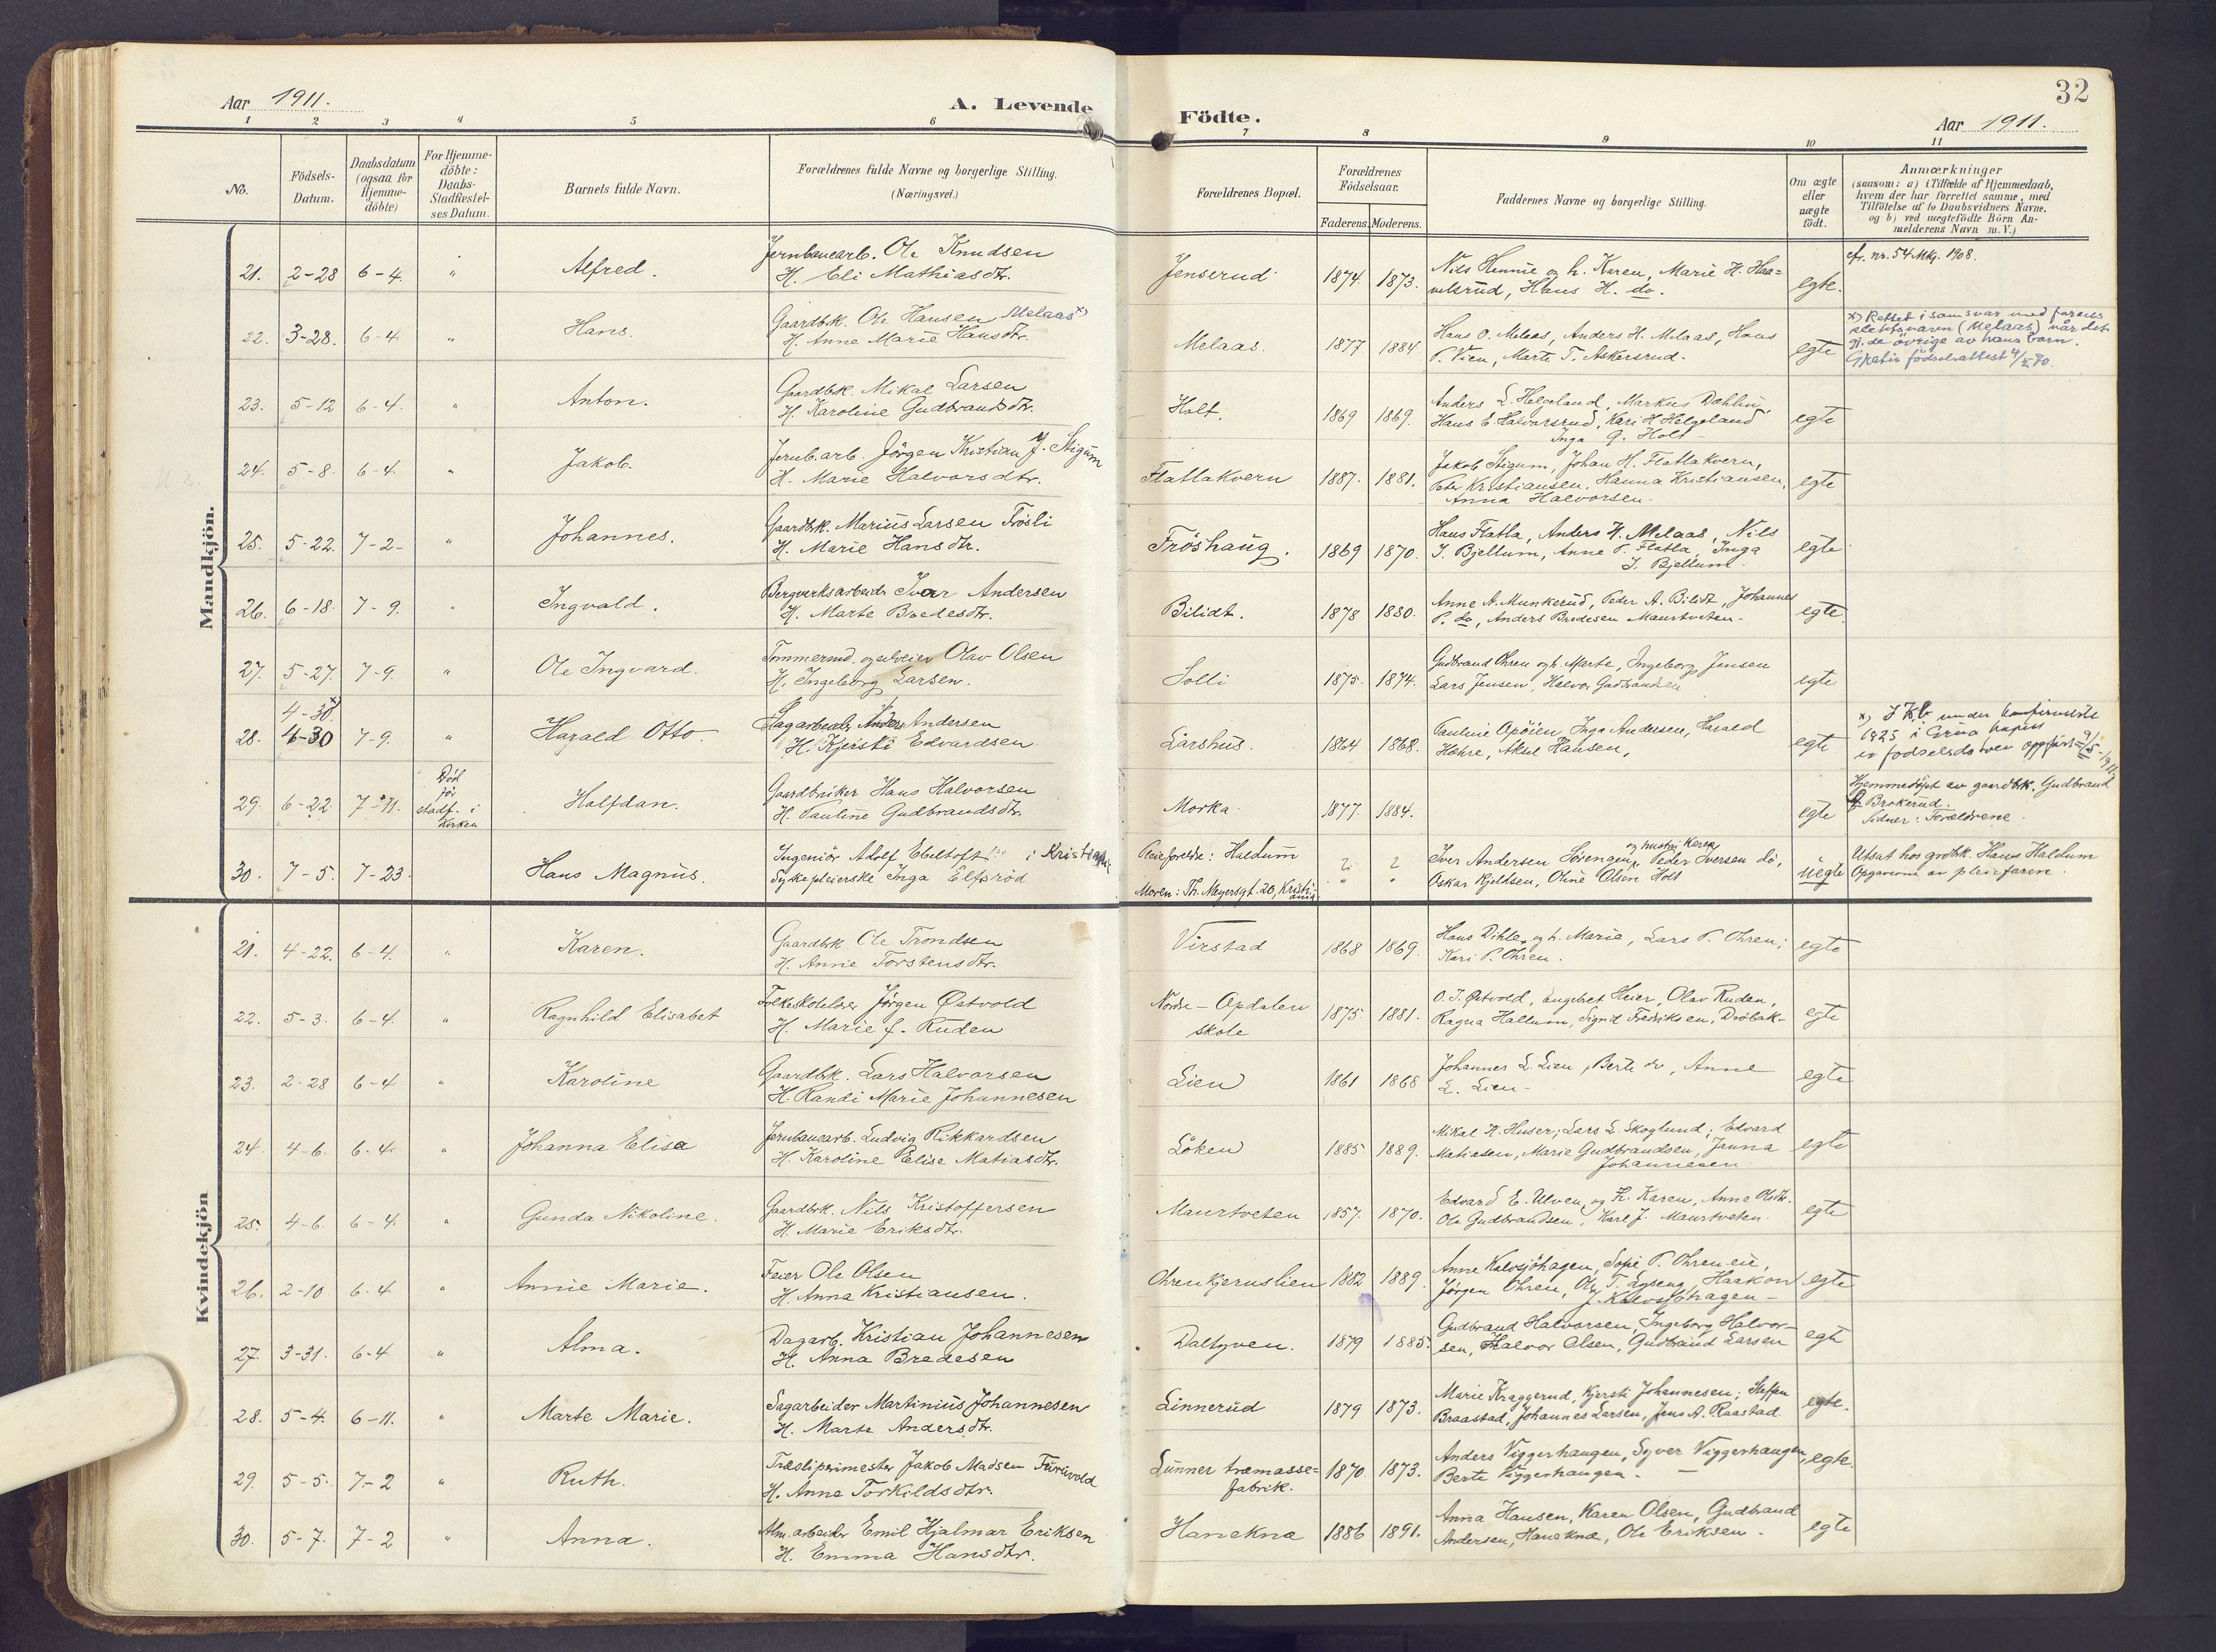 32
Aar 1911.
A. Levende
Födte.
Aar 1911.
1 2 3 4 5 6 7 8 9 10 11
No.
Födsels-
Datum.
Daabsdatum
(ogsaa for
Hjemme-
döbte)
For Hjemme-
döbte:
Daabs-
Stadfæstel-
ses Datum.
Barnets fulde Navn.
Forældrenes fulde Navne og borgerlige Stilling.
(Næringsvei.)
Forældrenes Bopæl.
Forældrenes
Födselsaar.
Faderens. Moderens.
Faddernes Navne og borgerlige Stilling.
Om ægte
eller
uægte
födt.
Anmærkninger
(saasom: a) i Tilfælde af Hjemmedaab,
hvem der har forrettet samme, med
Tilföielse af to Daabsvidners Navne.
og b) ved uægtefödte Börn An-
melderens Navn m. V.)
Mandkjön.
21. 2-28 6-4. " Alfred. Jernbanearb. Ole Knudsen
H. Eli Mathiasdtr.
Jenserud 1874. 1873. Nils Hennie og h. Karen, Marie H. Haa-
velsrud, Hans H. do. egte.
cfr. nr. 54 Mkj. 1908.
22. 3-28. 6-4 " Hans. Gaardbk. Ole Hansen Melaas x)
H. Anne Marie Hansdtr.
Melaas. 1877 1884 Hans O. Melaas, Anders H. Melaas, Hans
P. Vien, Marte T. Askersrud. egte
x) Rettet i samsvar med farens
slektsnavn (Melaas) når det
gj. de øvrige av hans barn.
23. 5-12 6-4. " Anton. Gaardbk. Mikal Larsen
H. Karoline Gudbrandsdtr.
Holt. 1869 1869. Anders L. Helgeland, Markus Dæhlin,
Hans E. Halvorsrud, Kari H. Helgeland
Inga G. Holt egte
24. 5-8. 6-4. " Jakob. Jernb.arb. Jörgen Kristian J. Stigum
H. Marie Halvorsdtr.
Flatlakvern 1887. 1881. Jakob Stigum, Johan H. Flatlakvern,
Peter Kristiansen, Hanna Kristiansen,
Anna Halvorsen. egte
25. 5-22. 7-2- " Johannes. Gaardbk. Marius Larsen Frösli
H. Marie Hansdtr.
Fröshaug. 1869 1870. Hans Flatla, Anders H. Melaas, Nils
J. Bjellum, Anne P. Flatla, Inga
J. Bjellum. egte
26. 6-18. 7-9. " Ingvald. Bergverksarbeider Iver Andersen
H. Marte Bredesdtr.
Bilidt. 1878 1880. Anne A. Munkerud, Peder A. Bilidt, Johannes
P. do, Anders Bredesen Maurtveten. egte
27. 5-27. 7-9. " Ole Ingvard. Tömmermd. og selveier Olav Olsen
H. Ingeborg Larsen.
Solli 1875. 1874. Gudbrand Ohren og h. Marte, Ingeborg Jensen
Lars Jensen, Halvor Gudbrandsen egte
4-30 x)
28. 4-30 7-9. " Harald Otto Sagarbeider Anders Andersen
H. Kjersti Edvardsen
Larshus. 1864 1868. Pauline Opöien, Inga Andersen, Harald
Hæhre, Aksel Hansen, egte
x) I K.b under konfirmerte
1925 i Grua kapell
er fødselsdatoen oppført 9/5-1911
29. 6-22. 7-11. Död
før
stadf. i
Kirken
Halfdan. Gaardbruker Hans Halvorsen
H. Pauline Gudbrandsdtr.
Morka. 1877. 1884. egte
Hjemmedöpt av gaardbk. Gudbrand
Brokerud.
Vidner: Forældrene.
30. 7-5. 7-23. Hans Magnus. Ingeniör Adolf Ebeltoft i Kristiania
Sykepleierske Inga Elfsröd
Pleieforeldre: Haldum
Moren: Th. Meyersgt. 20, Kristi-
ania
? ? og hustru Karen
Iver Andersen Sörengen, Peder Iversen do,
Oskar Kjeldsen, Oline Olsen Holt uegte
Utsat hos grdbk. Hans Haldum
Opgaverne av pleiefaren.
Kvindekjön
21. 4-22. 6-4. " Karen. Gaardbk. Ole Trondsen
H. Anne Torstensdtr.
Virstad 1868 1869. Hans Dihle og h. Marie, Lars P. Ohren,
Kari P. Ohren. egte
22. 5-3. 6-4. " Ragnhild Elisabet Folkeskolelærer Jörgen Østvold
H. Marie f. Ruden
Nordre-Opdalen
skole
1875. 1881. O. J. Østvold, Engebret Heier, Olav Ruden,
Ragna Hallum, Sigrid Fredriksen, Dröbak- egte
23. 2-28 6-4 " Karoline Gaardbk. Lars Halvorsen
H. Randi Marie Johannesen
Lien 1861 1868 Johannes L. Lien, Berte do, Anne
L. Lien- egte
24. 4-6. 6-4. " Johanna Elisa Jernbanearb. Ludvig Rikkardsen
H. Karoline Elise Matiasdtr.
Löken 1885 1889. Mikal H. Huser; Lars L. Skoglund; Edvard
Matiasen, Marie Gudbrandsen, Janna
Johannesen egte
25. 4-6. 6-4. " Gunda Nikoline. Gaardbk. Nils Kristoffersen
H. Marie Eriksdtr.
Maurtveten 1857. 1870. Edvard E. Ulven og H. Karen, Anne Olsdtr.
Ole Gudbrandsen, Karl J. Maurtveten. egte
26. 2-10 6-4 " Annie Marie. Feier Ole Olsen
H. Anna Kristiansen.
Ohrenkjernslien 1882 1889. Anne Kalvsjöhagen, Sofie P. Ohreneie,
Jörgen Ohren, Ole T. Lyseng, Haakon
J. Kalvsjöhagen- egte
27. 3-31. 6-4 " Alma. Dagarb. Kristian Johannesen
H. Anna Bredesen
Daltyven. 1879 1885. Gudbrand Halvorsen, Ingeborg Halvor-
sen, Halvor Olsen, Gudbrand Larsen egte
28. 5-4. 6-11. " Marte Marie. Sagarbeider Martinius Johannesen
H. Marte Andersdtr.
Linnerud 1879 1873. Marie Kraggerud, Kjersti Johannesen; Steffen
Braastad, Johannes Larsen, Jens A. Raastad. egte.
29. 5-5. 7-2 " Ruth. Træsliperimester Jakob Madsen Furuvold
H. Anne Torkildsdtr.
Lunner træmasse-
fabrik.
1870. 1873. Anders Viggerhaugen, Syver Viggerhaugen,
Berte Viggerhaugen. - egte.
30. 5-7. 7-2 " Anna. Alm. arbeider Emil Hjalmar Eriksen
H. Emma Hansdtr.
Hanekna 1886 1891. Anna Hansen, Karen Olsen, Gudbrand
Andersen, Hanekna, Ole Eriksen. egte